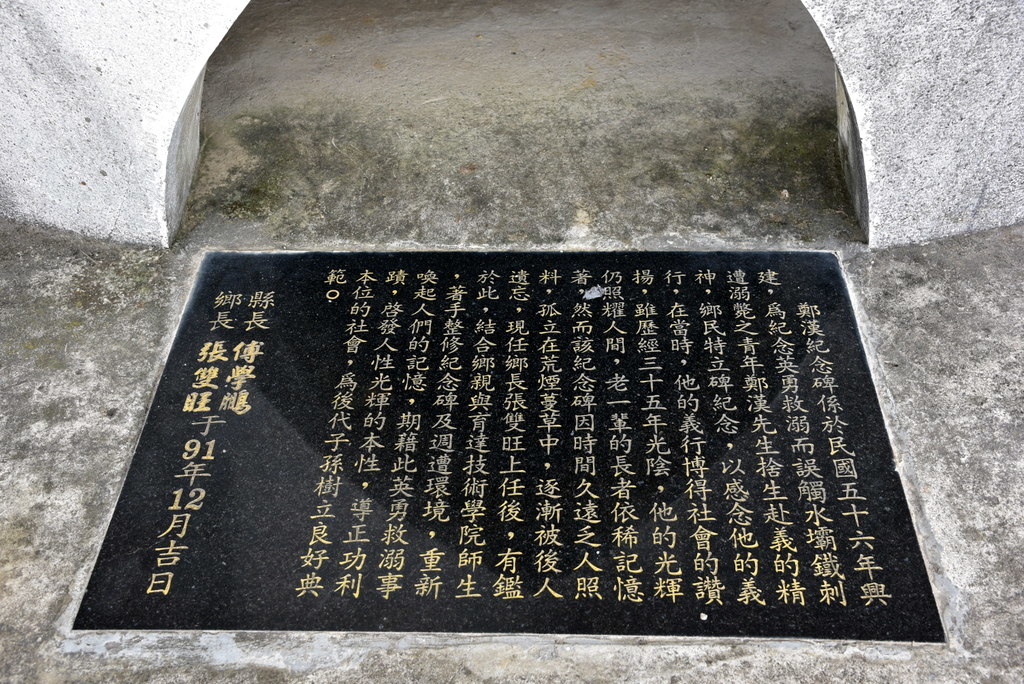 鄭漢紀念碑係於民國五十六年興
建，為紀念英勇救溺而誤觸水壩鐵刺
遭溺斃之青年鄭漢先生捨生赴義的精
神，鄉民特立碑紀念，以感念他的義
行，在當時，他的義行博得社會的讚
揚，雖歷經三十五年光陰，他的光輝
仍照耀人間，老一輩的長者依稀記憶
著，然而該紀念碑因時間久遠之人照
料，孤立在荒煙蔓草中，逐漸被後人
遺忘，現任鄉長張雙旺上任後，有鑑
於此，結合鄉親與育達技術學院師生
，著手整修紀念碑及週遭環境，重新
喚起人們的記憶，期藉此英勇救溺事
蹟，啓發人性光輝的本性，導正功利
本位的社會，為後代子孫樹立良好典
範。
縣長 傅學鵬
鄉長 張雙旺于91年12月吉日